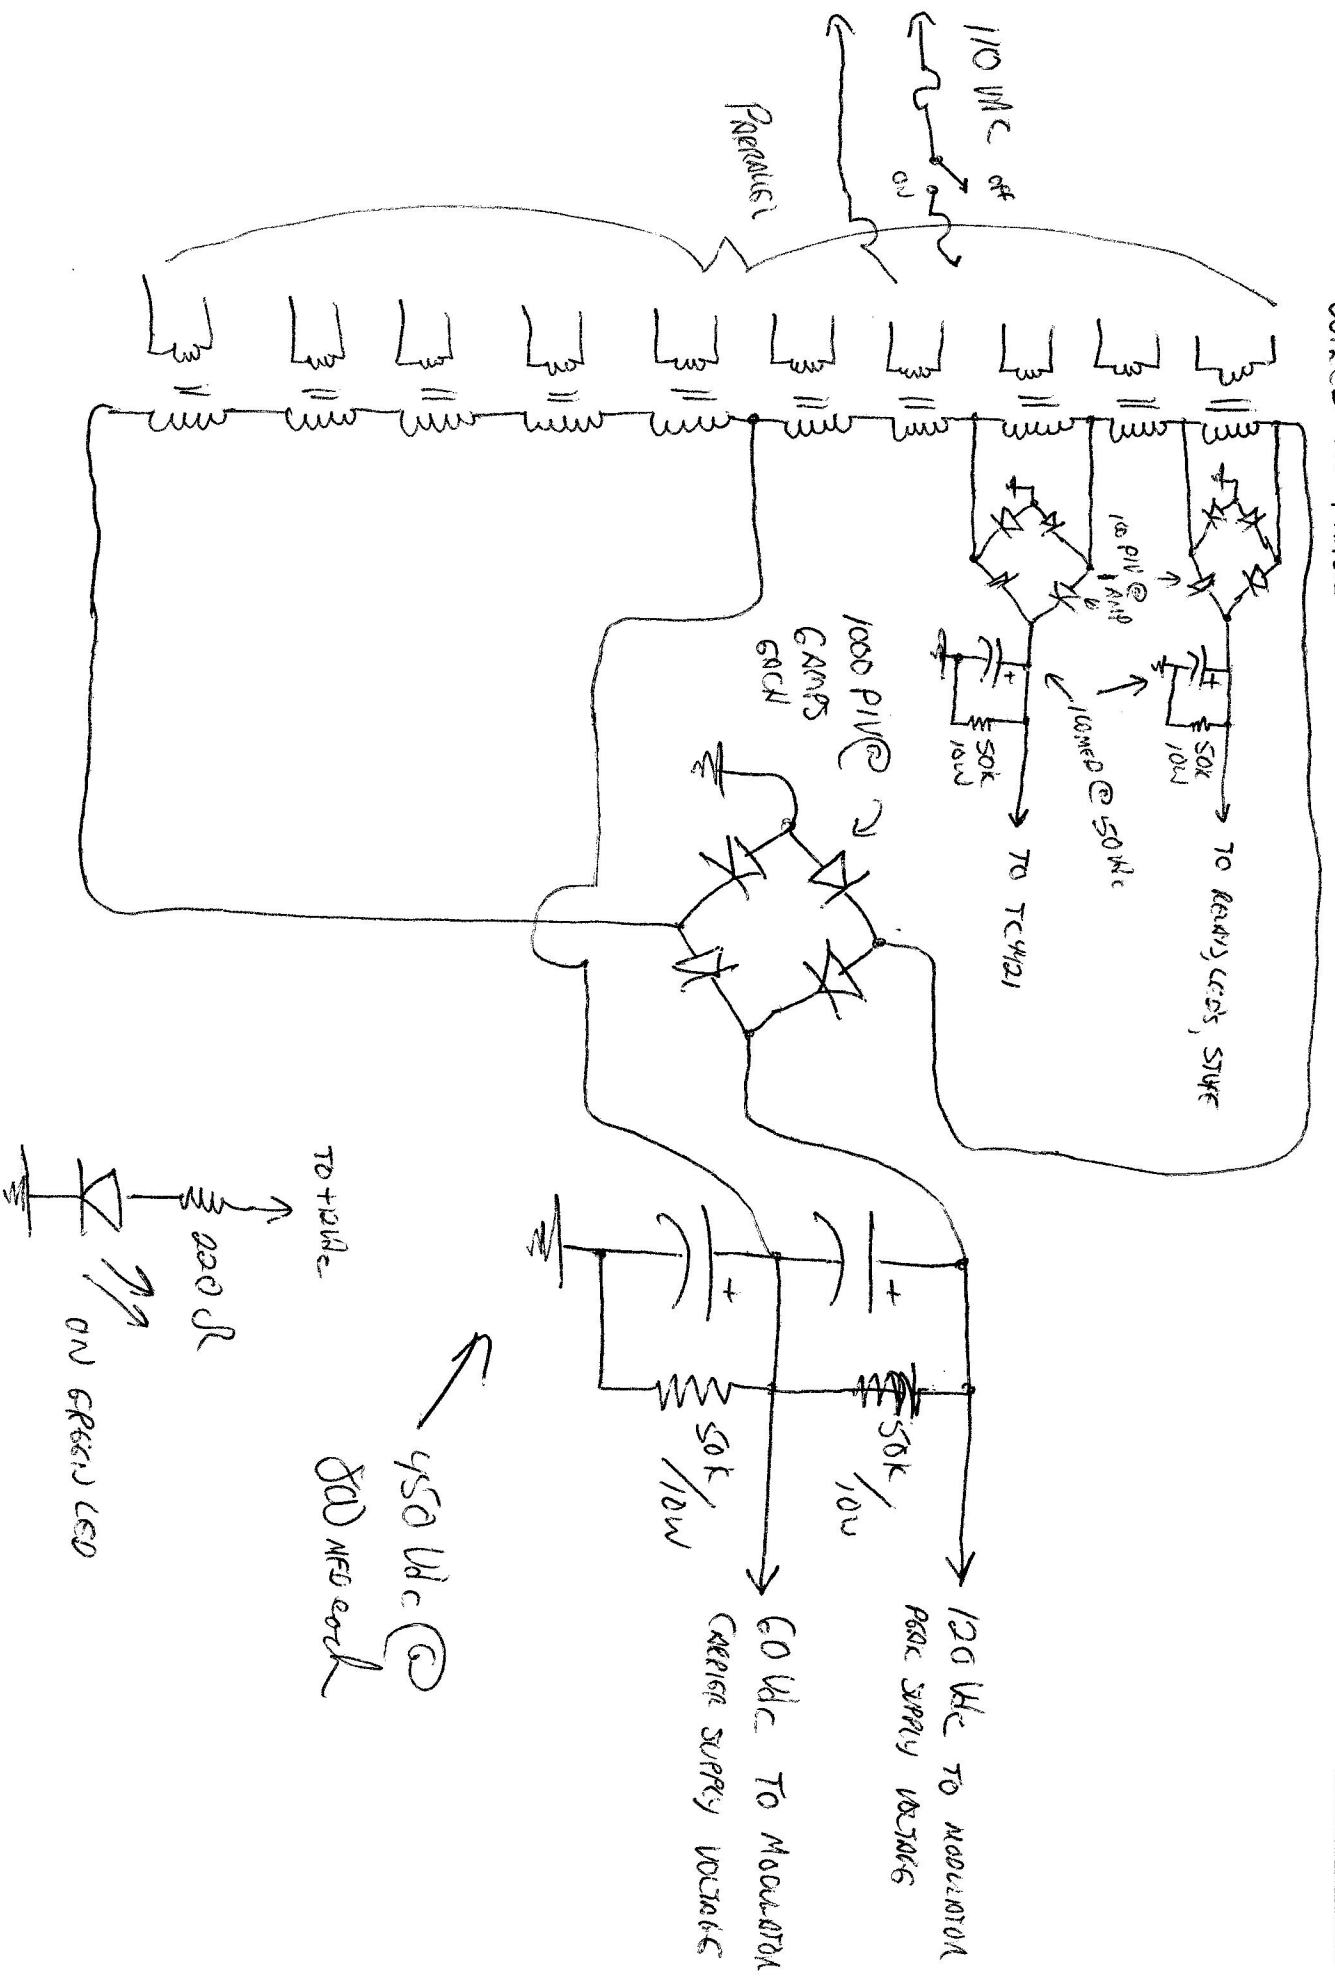 110 VAC
OFF
ON
PARRALLEL
100 PIV @
1 AMP
50K
10W
TO RELAYS, LEDS, STUFF
100 MFD @ 50 Vdc
50K
10W
TO TC4421
1000 PIV @
6 AMPS
EACH
+
+
+
+
50K
/10W
50K
/10W
120 Vdc TO MODULATOR
PEAK SUPPLY VOLTAGE
60 Vdc TO MODULATOR
CARRIER SUPPLY VOLTAGE
450 Vdc @
800 MFD each
TO +12Vdc
220 Ω
ON GREEN LED